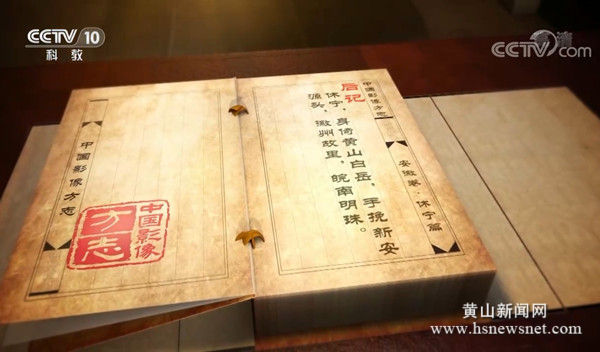 CCTV 10
科教
CCTV.com
中国影像方志
安徽卷·休宁篇
后记
休宁，身倚黄山白岳，手挽新安
源头，徽州故里，皖南明珠。
中国影像方志
中国影像
方志
黄山新闻网
www.hsnewsnet.com